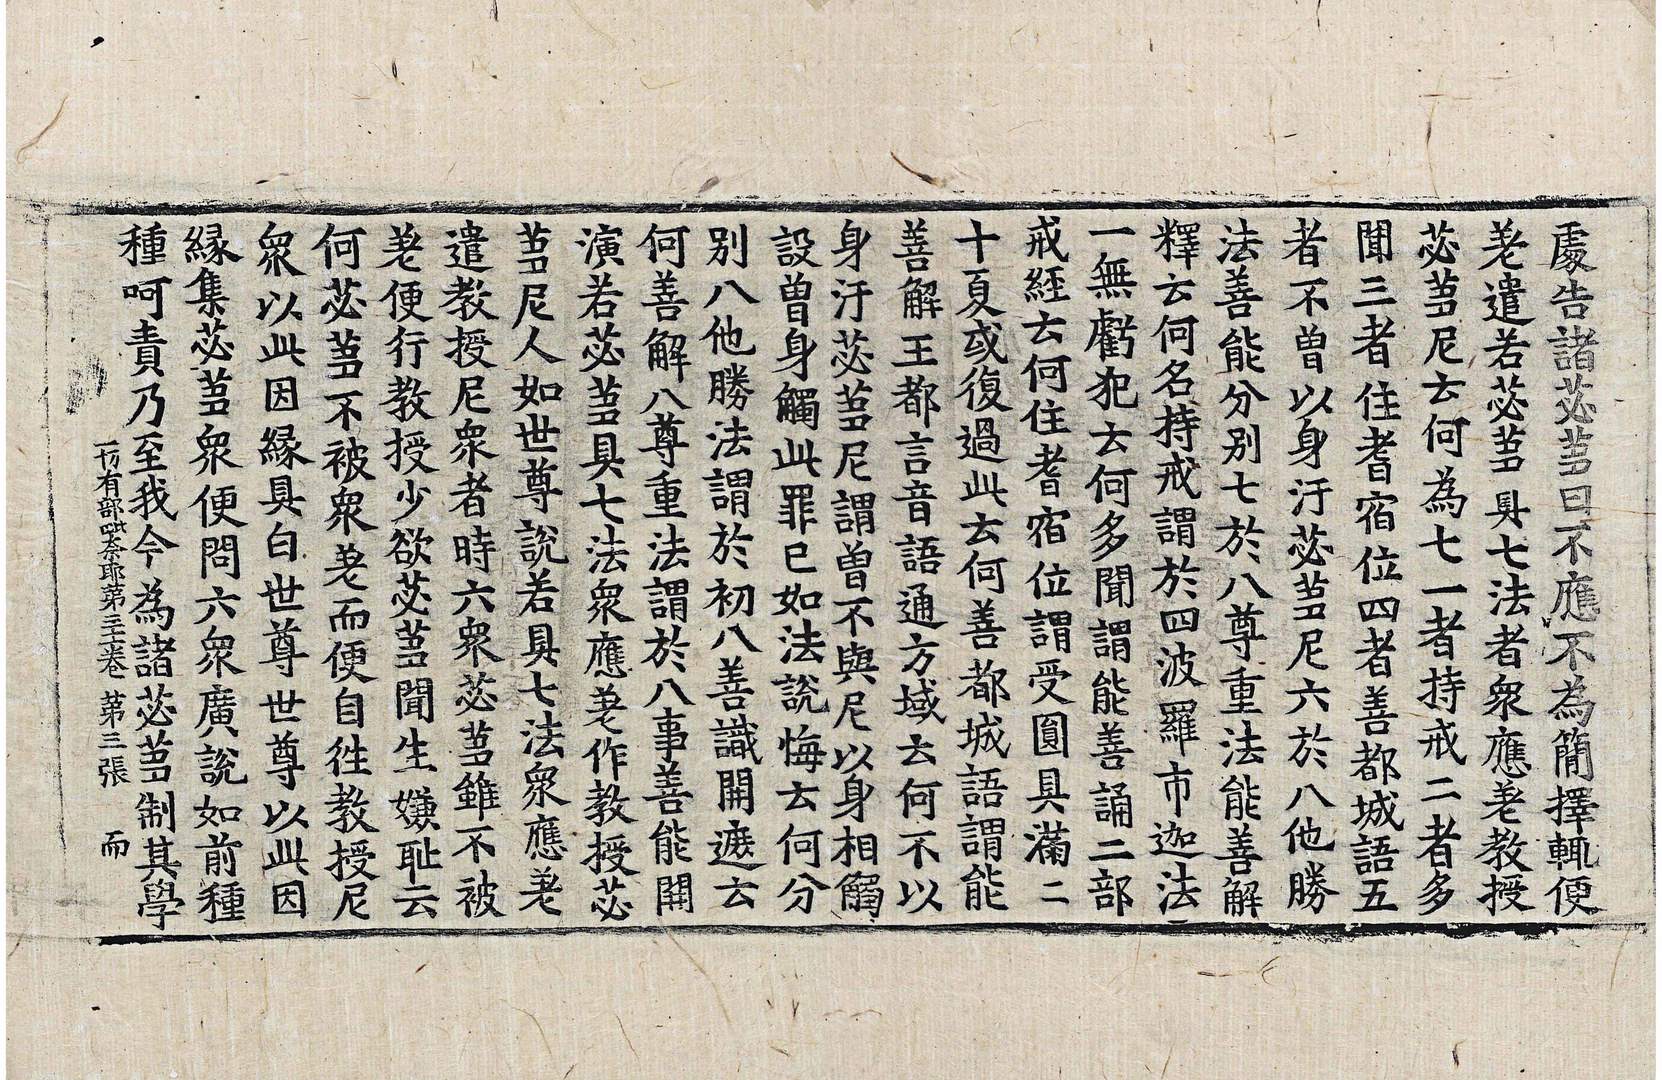 處告諸苾芻曰不應不為簡擇輒便
差遣若苾芻具七法者眾應差教授
苾芻尼云何為七一者持戒二者多
聞三者住耆宿位四者善都城語五
者不曾以身汙苾芻尼六於八他勝
法善能分別七於八尊重法能善解
釋云何名持戒謂於四波羅市迦法
一無虧犯云何多聞謂能善誦二部
戒經云何住耆宿位謂受圓具滿二
十夏或復過此云何善都城語謂能
善解王都言音語通方域云何不以
身汙苾芻尼謂曾不與尼以身相觸
設曾身觸此罪已如法說悔云何分
別八他勝法謂於初八善識開遮云
何善解八尊重法謂於八事善能開
演若苾芻具七法眾應差作教授苾
芻尼人如世尊說若具七法眾應差
遣教授尼眾者時六眾苾芻雖不被
差便行教授少欲苾芻聞生嫌恥云
何苾芻不被眾差而便自往教授尼
眾以此因緣具白世尊世尊以此因
緣集苾芻眾便問六眾廣說如前種
種呵責乃至我今為諸苾芻制其學
一切有部毗奈耶第三十卷 第三張 而